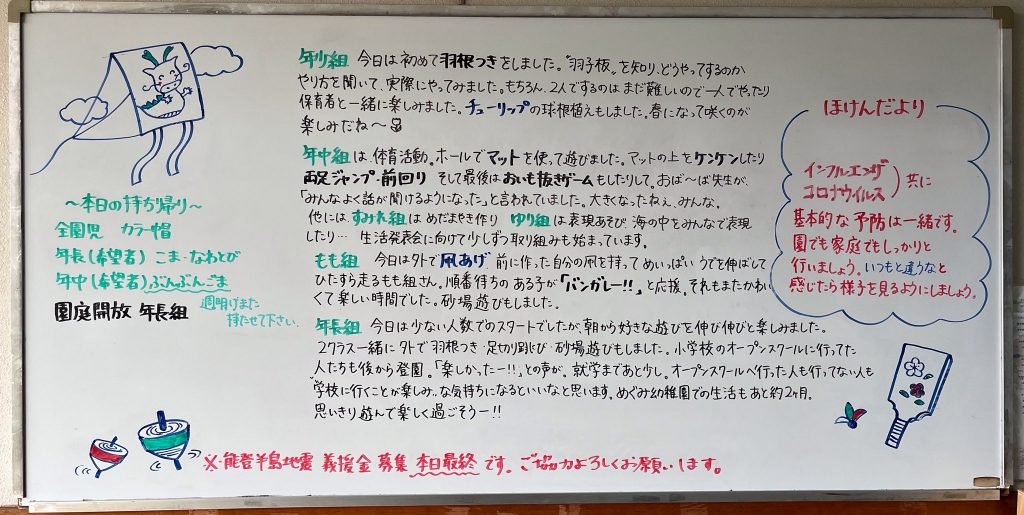 年少組 今日は初めて羽根つきをしました。"羽子板"を知り、どうやってするのか
やり方を聞いて、実際にやってみました。もちろん、2人でするのはまだ難しいので一人でやったり
保育者と一緒に楽しみました。チューリップの球根植えもしました。春になって咲くのが
楽しみだね～
年中組は、体育活動。ホールでマットを使って遊びました。マットの上をケンケンしたり
両足ジャンプ・前回り そして最後はおいも抜きゲームもしたりして。おば～ば先生が、
「みんなよく話が聞けるようになった」と言われていました。大きくなったねぇ、みんな。
他には、すみれ組はめだまやき作り ゆり組は表現あそび、海の中をみんなで表現
したり… 生活発表会に向けて少しずつ取り組みも始まっています。
もも組 今日は外で凧あげ 前に作った自分の凧を持ってめいっぱいうでを伸ばして
ひたすら走るもも組さん。順番待ちのある子が「バンガレー!!」と応援、それもまたかわい
くて楽しい時間でした。砂場遊びもしました。
年長組 今日は少ない人数でのスタートでしたが、朝から好きな遊びを伸び伸びと楽しみました。
2クラス一緒に外で羽根つき・足切り跳び・砂場遊びもしました。小学校のオープンスクールに行ってた
人たちも後から登園。「楽しかったー!!」との声が。就学まであと少し。オープンスクールへ行った人も行ってない人も
"学校に行くことが楽しみ"な気持ちになるといいなと思います。めぐみ幼稚園での生活もあと約2ヶ月。
思いきり遊んで楽しく過ごそうー!!
～本日の持ち帰り～
全園児 カラー帽
年長(希望者) こま・なわとび
年中(希望者) ぶんぶんごま
週明けまた
持たせて下さい。
園庭開放 年長組
ほけんだより
インフルエンザ
コロナウイルス
共に
基本的な予防は一緒です。
園でも家庭でもしっかりと
行いましょう。いつもと違うなと
感じたら様子を見るようにしましょう。
※能登半島地震 義援金募集 本日最終です。ご協力よろしくお願いします。